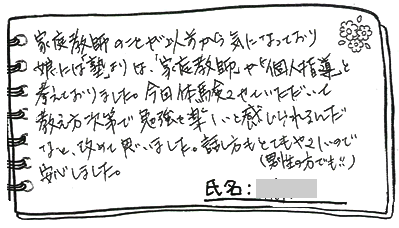 家庭教師のことが以前から気になっており
娘には「塾」よりは、「家庭教師」や「個人指導」と
考えておりました。今回体験させていただいて
教え方次第で勉強を楽しいと感じられるんだ
なと、改めて思いました。話し方もとてもやさしいので
(男性の方でも!!)
安心しました。
氏名: